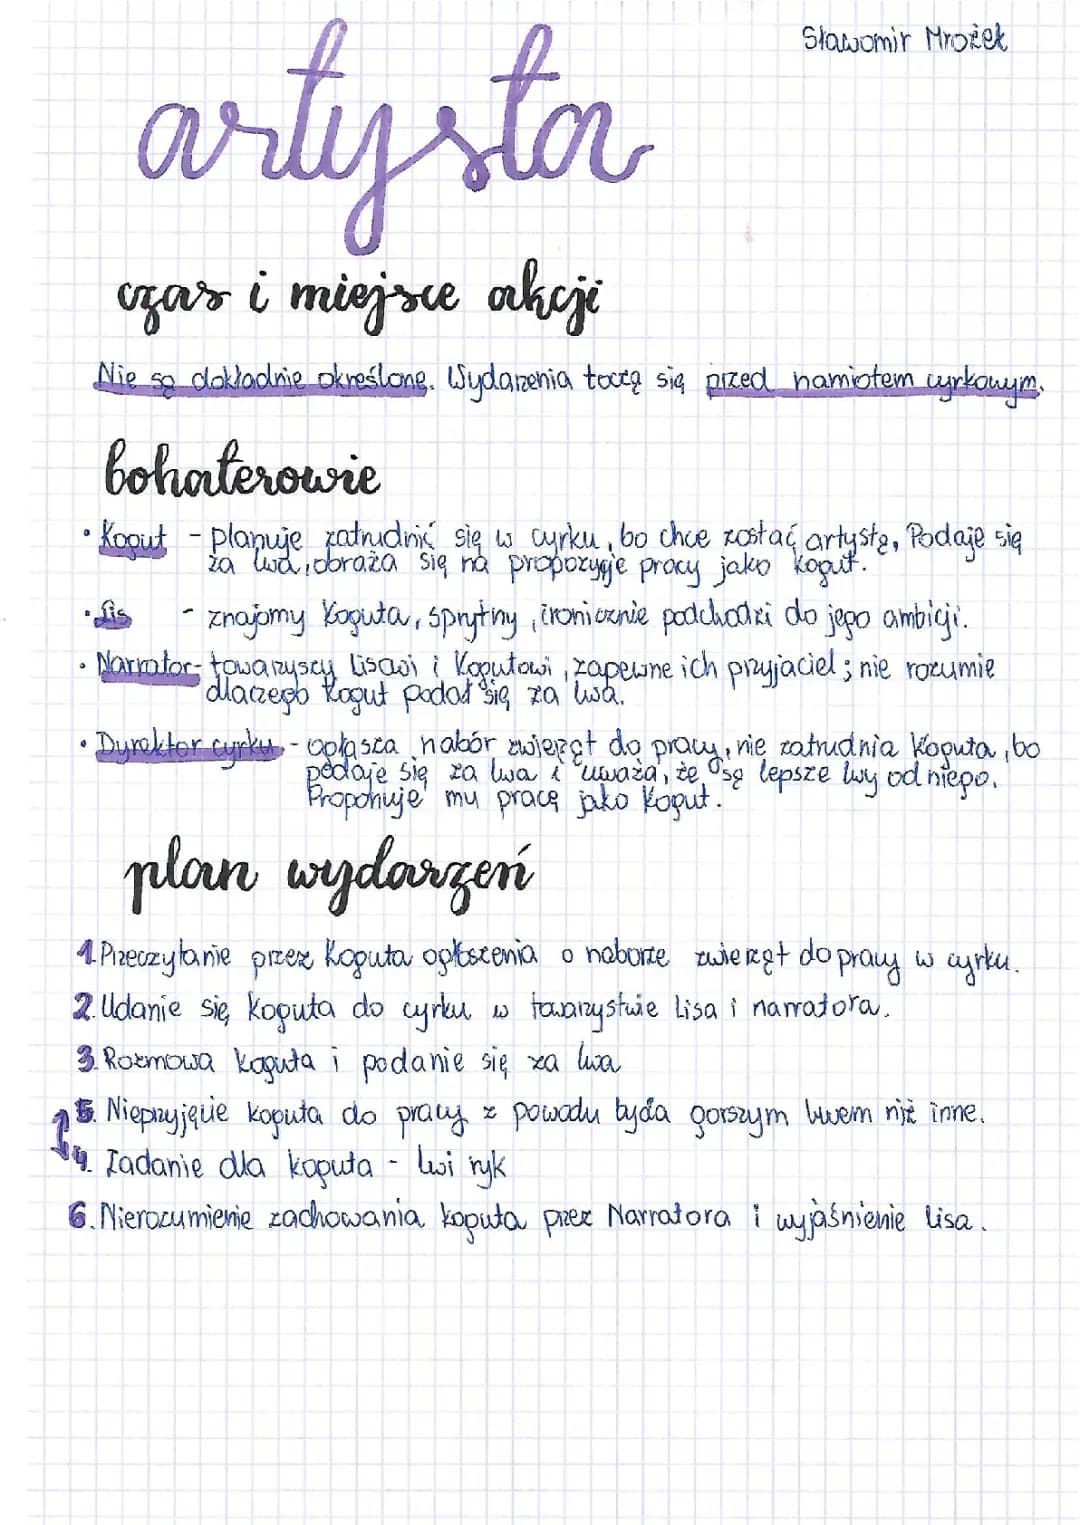 Sławomir Mrożek
artysta
czas i miejsce akcji
Nie są dokładnie określone. Wydarzenia toczą się przed namiotem cyrkowym.
bohaterowie
• Kogut - planuje zatrudnić się w cyrku, bo chce zostać artystą, Podaje się
za lwa, obraża się na propozycje pracy jako kogut.
• Lis - znajomy Koguta, sprytny, ironicznie podchodzi do jego ambicji.
• Narrator - towarzyszy Lisowi i Kogutowi, zapewne ich przyjaciel; nie rozumie
dlaczego Kogut podał się za lwa.
• Dyrektor cyrku - ogłasza nabór zwierząt do pracy, nie zatrudnia Koguta, bo
podaje się za lwa i uważa, że są lepsze lwy od niego.
Proponuje mu pracę jako Kogut.
plan wydarzeń
1. Przeczytanie przez Koguta ogłoszenia o naborze zwierząt do pracy w cyrku.
2. Udanie się Koguta do cyrku w towarzystwie Lisa i narratora.
3. Rozmowa koguta i podanie się za lwa
5. Nieprzyjęcie koguta do pracy z powodu bycia gorszym lwem niż inne.
4. Zadanie dla koguta - lwi ryk
6. Nierozumienie zachowania koguta przez Narratora i wyjaśnienie lisa.